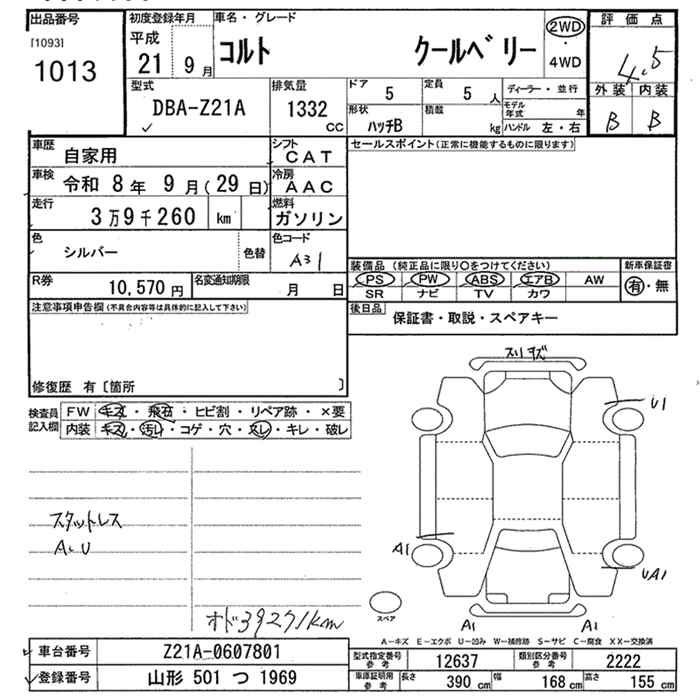 出品番号 初度登録年月 車名・グレード 2WD 評価点
[1093] 平成 コルト クールベリー ・ 4.5
1013 21 9月 4WD
型式 排気量 ドア 5 定員 5人 ディーラー・並行 外装 内装
DBA-Z21A 1332cc 形状 ハッチB 積載 kg モデル年式 年 B B
ハンドル 左・右
車歴 自家用 シフト CAT セールスポイント(正常に機能するものに限ります)
車検 令和 8年 9月(29日) 冷房 AAC
走行 3万9千260 km 燃料 ガソリン
色 シルバー 色替 色コード A31
装備品(純正品に限り○をつけてください) 新車保証書
R券 10,570円 名変通知期限 月 日 PS PW ABS エアB AW 有・無
SR ナビ TV カワ
注意事項申告欄(不具合内容等は具体的に記入して下さい) 後日品 保証書・取説・スペアキー
修復歴 有〔箇所 〕
スリキズ
検査員記入欄 FW キズ・飛石・ヒビ割・リペア跡・×要 U1
内装 キズ・汚レ・コゲ・穴・スレ・キレ・破レ
スタットレス
A・U A1
UA1
オド39271km スペア A1 A1
A-キズ E-エクボ U-凹み W-補修跡 S-サビ C-腐食 XX-交換済
車台番号 Z21A-0607801 型式指定番号 参考 12637 類別区分番号 参考 2222
登録番号 山形 501 つ 1969 車庫証明用 参考 長さ 390cm 幅 168cm 高さ 155cm